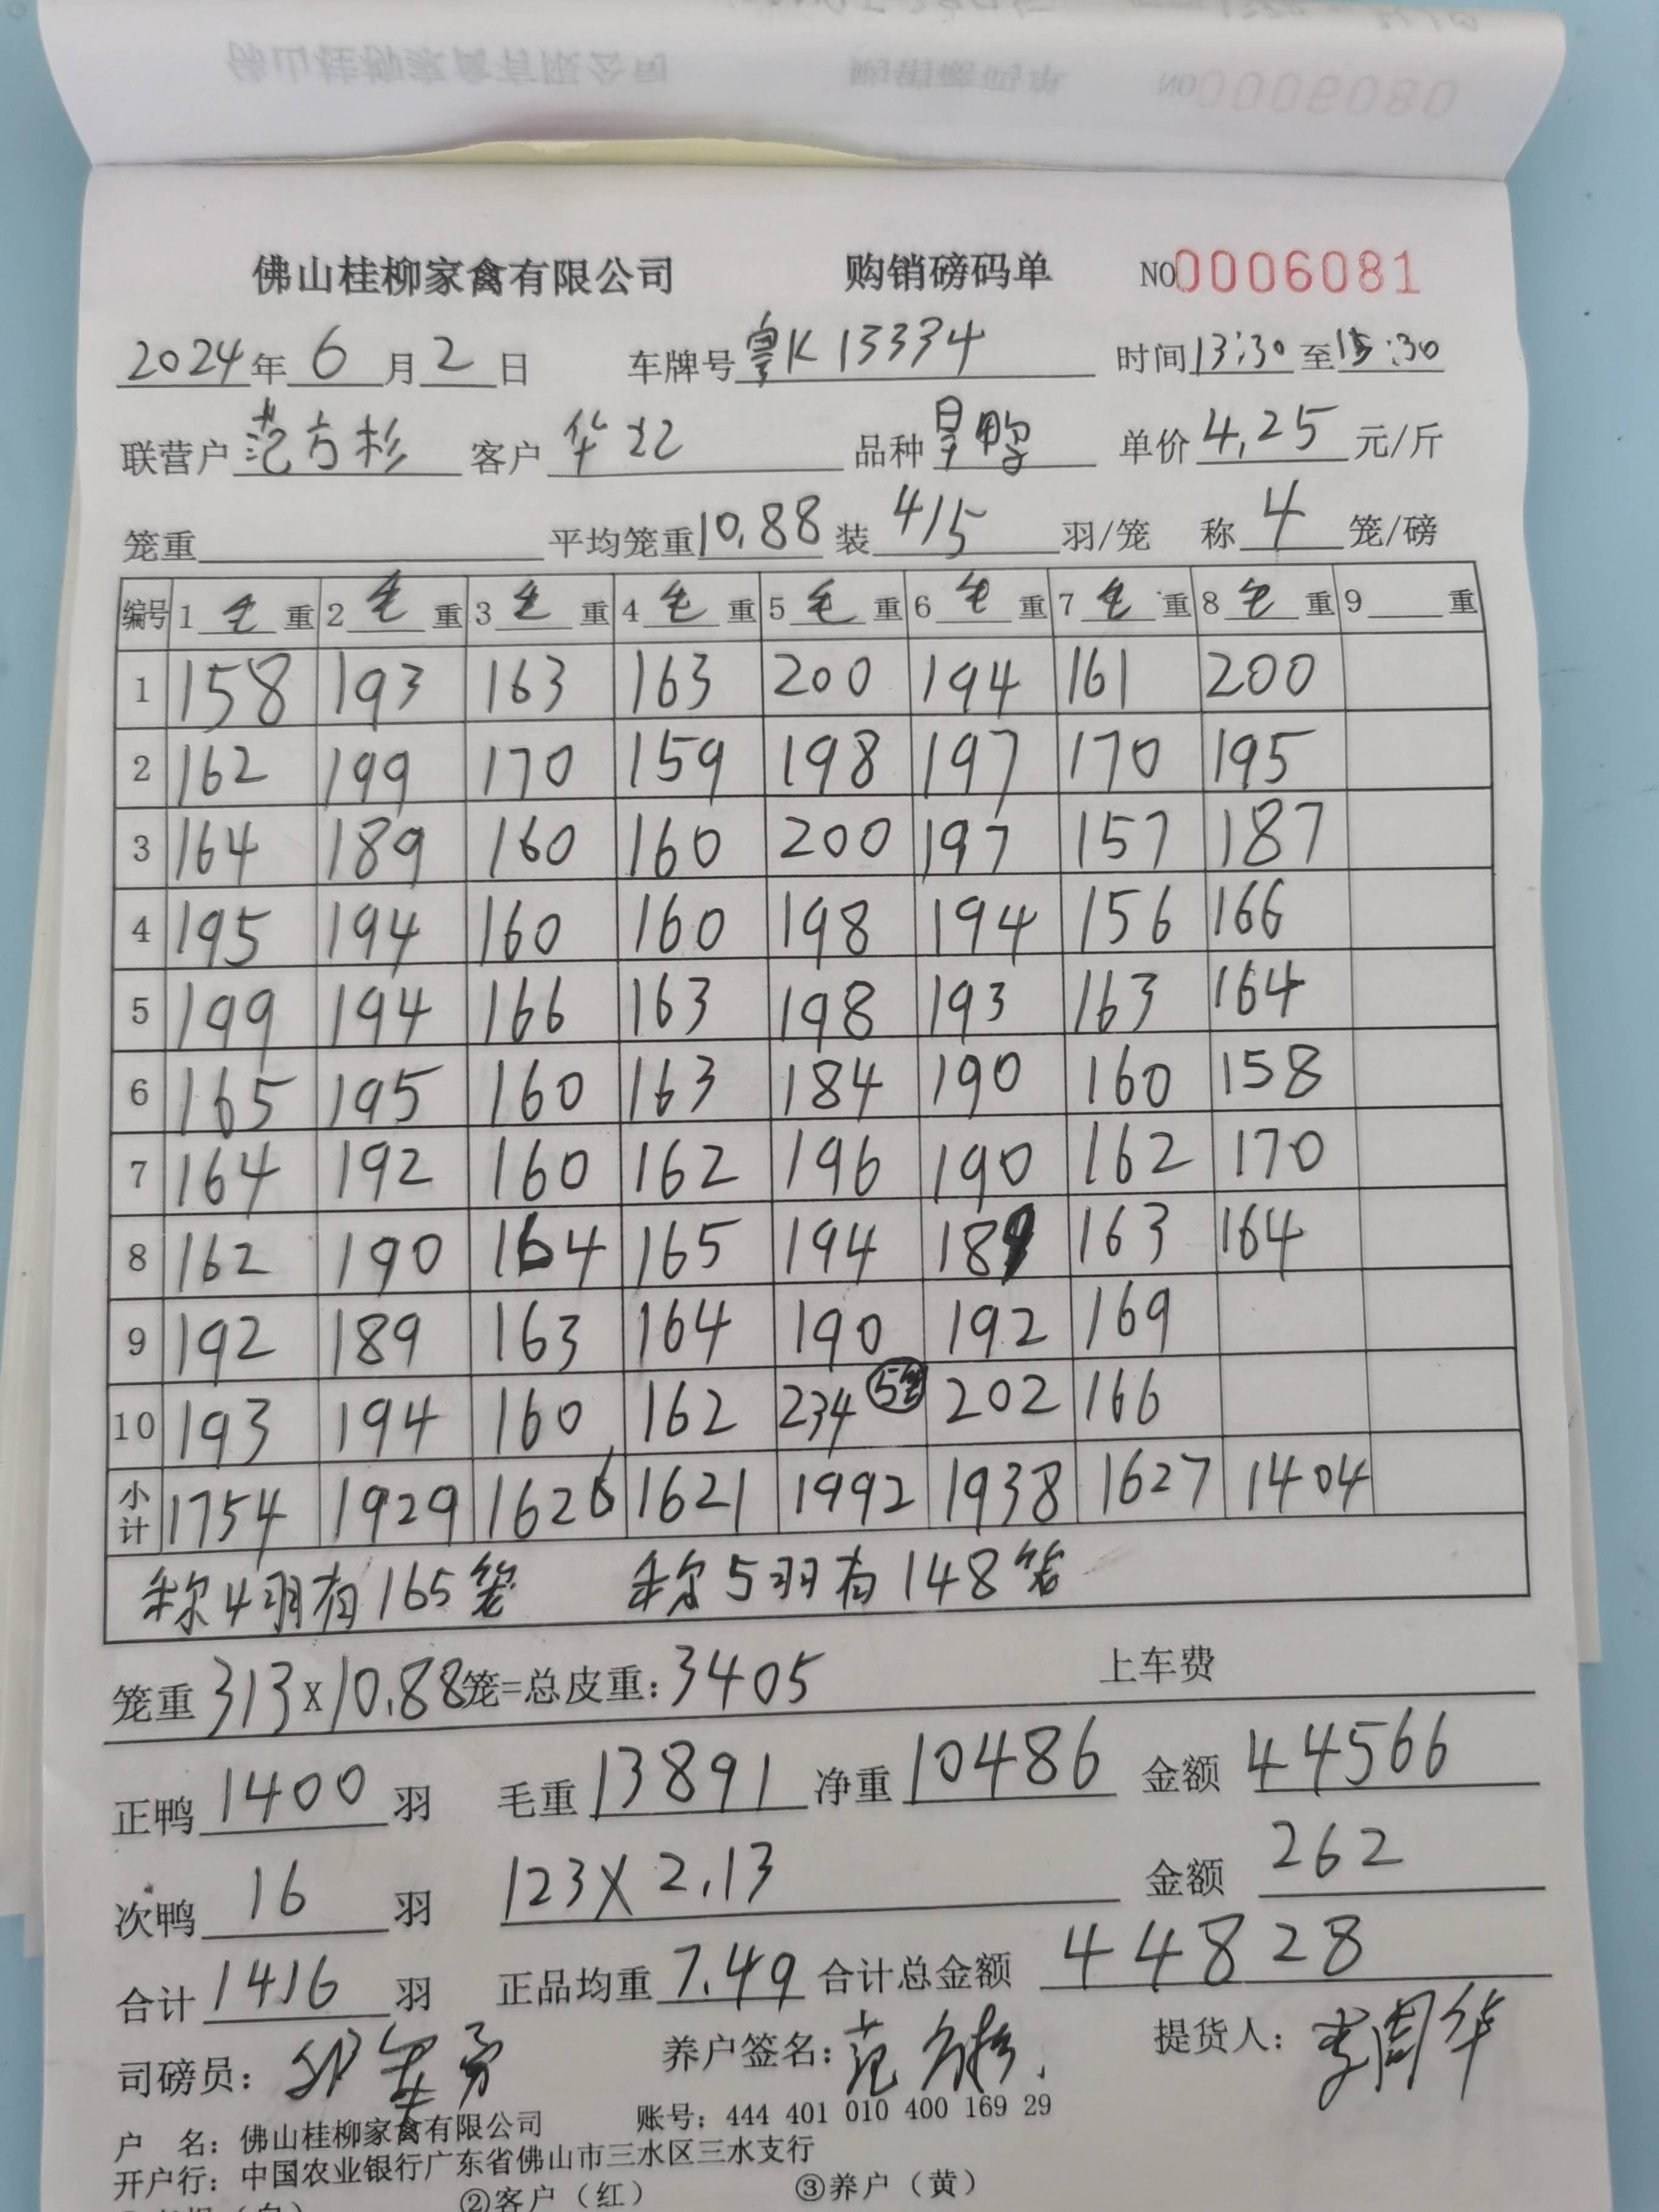 佛山桂柳家禽有限公司 购销磅码单 NO0006081
2024年6月2日 车牌号粤K13334 时间13:30至15:30
联营户范方杉 客户华记 品种旱鸭 单价4,25元/斤
笼重 平均笼重10.88装4/5羽/笼 称4笼/磅
编号 1毛重 2毛重 3毛重 4毛重 5毛重 6毛重 7毛重 8毛重 9重
1 158 193 163 163 200 194 161 200
2 162 199 170 159 198 197 170 195
3 164 189 160 160 200 197 157 187
4 195 194 160 160 198 194 156 166
5 199 194 166 163 198 193 163 164
6 165 195 160 163 184 190 160 158
7 164 192 160 162 196 190 162 170
8 162 190 164 165 194 189 163 164
9 192 189 163 164 190 192 169
10 193 194 160 162 234 5笼 202 166
小计 1754 1929 1626 1621 1992 1938 1627 1404
称4羽有165笼 称5羽有148笼
笼重313x10.88笼=总皮重:3405 上车费
正鸭1400羽 毛重13891净重10486 金额44566
次鸭16羽 123X2.13 金额262
合计1416羽 正品均重7.49合计总金额44828
司磅员: 养户签名:范方杉 提货人:李周华
户 名:佛山桂柳家禽有限公司 账号:444 401 010 400 169 29
开户行:中国农业银行广东省佛山市三水区三水支行
②客户(红) ③养户(黄)